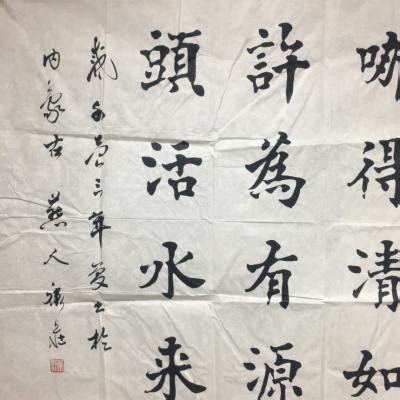 哪得清如
許為有源
頭活水来
三年夏书於
内蒙古 燕人